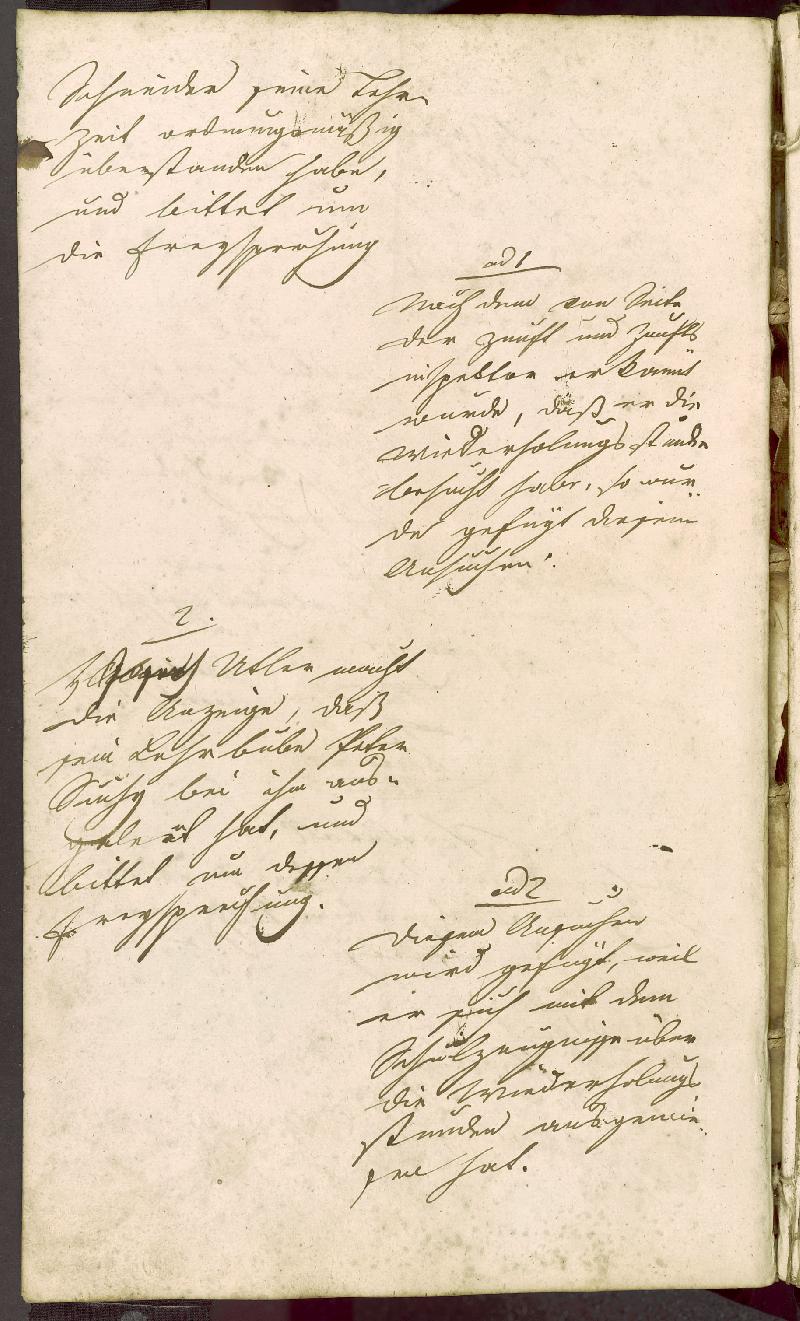 Schneider seine Lehr-
zeit ordnungsmäßig
überstanden habe,
und bittet um
die Freysprechung
ad 1
Nach dem von Seite
der Zunft und Zunfts
inspektor erkannt
wurde, daß er die
Wiederholungsstunden
besucht habe, so wur
de gefügt diesem
Ansuchen.
2.
Utler macht
die Anzeige, daß
sein Lehrbube Peter
Suchy bei ihm aus-
gelernt hat, und
bittet um dessen
Freysprechung.
ad 2
Diesem Ansuchen
wird gefügt, weil
er sich mit dem
Schulzeugnisse über
die Wiederholungs
stunden ausgewie
sen hat.